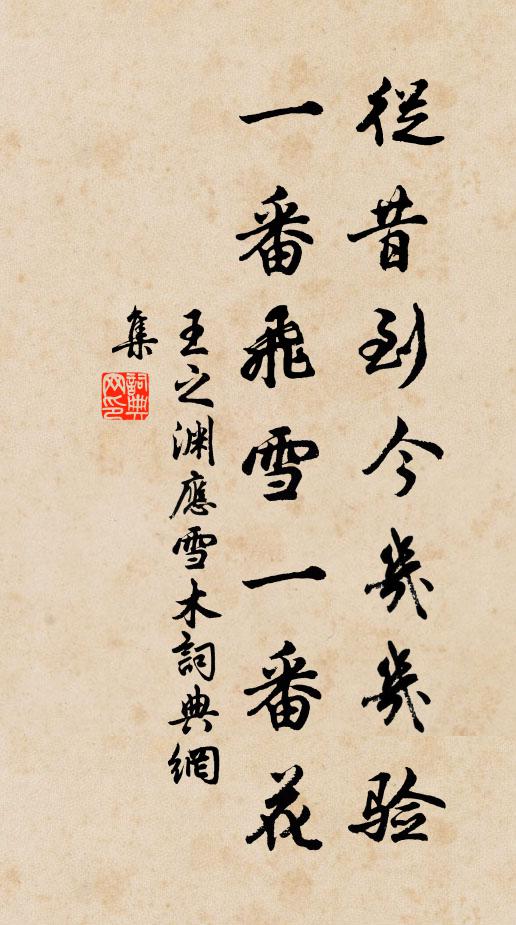 從昔到今幾幾验
一番飛雪一番花
王之渊應雪木詞典網
集
詞典
网印